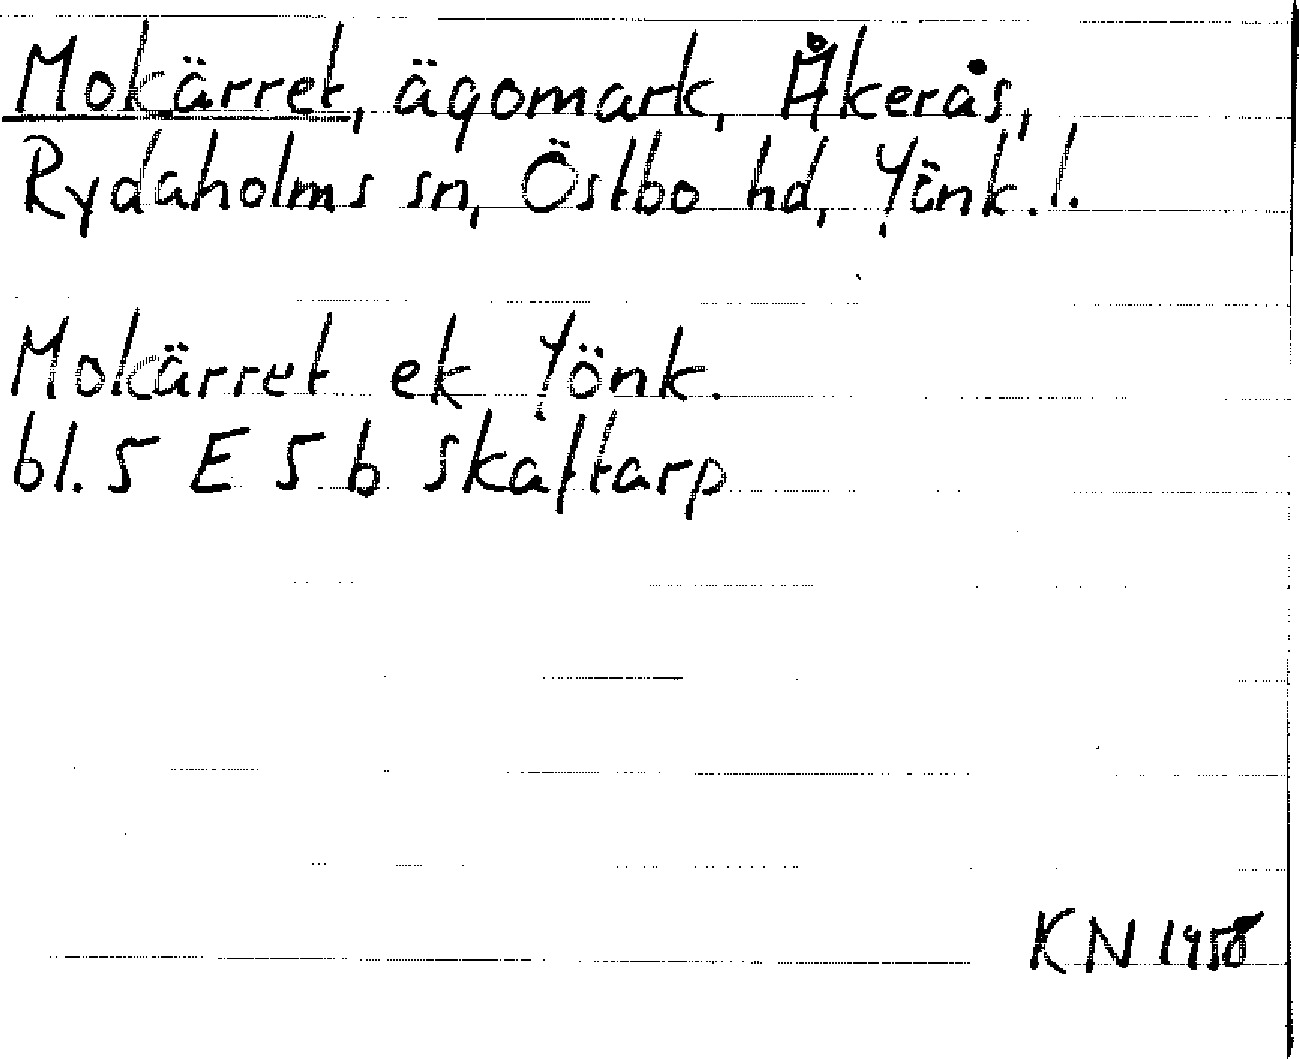 Mokärret, ägomark, Åkerås,
Rydaholms sn, Östbo hd, Jönk.!.
Mokärret ek Jönk.
bl. 5 E 5 b Skaftarp
KN 1958